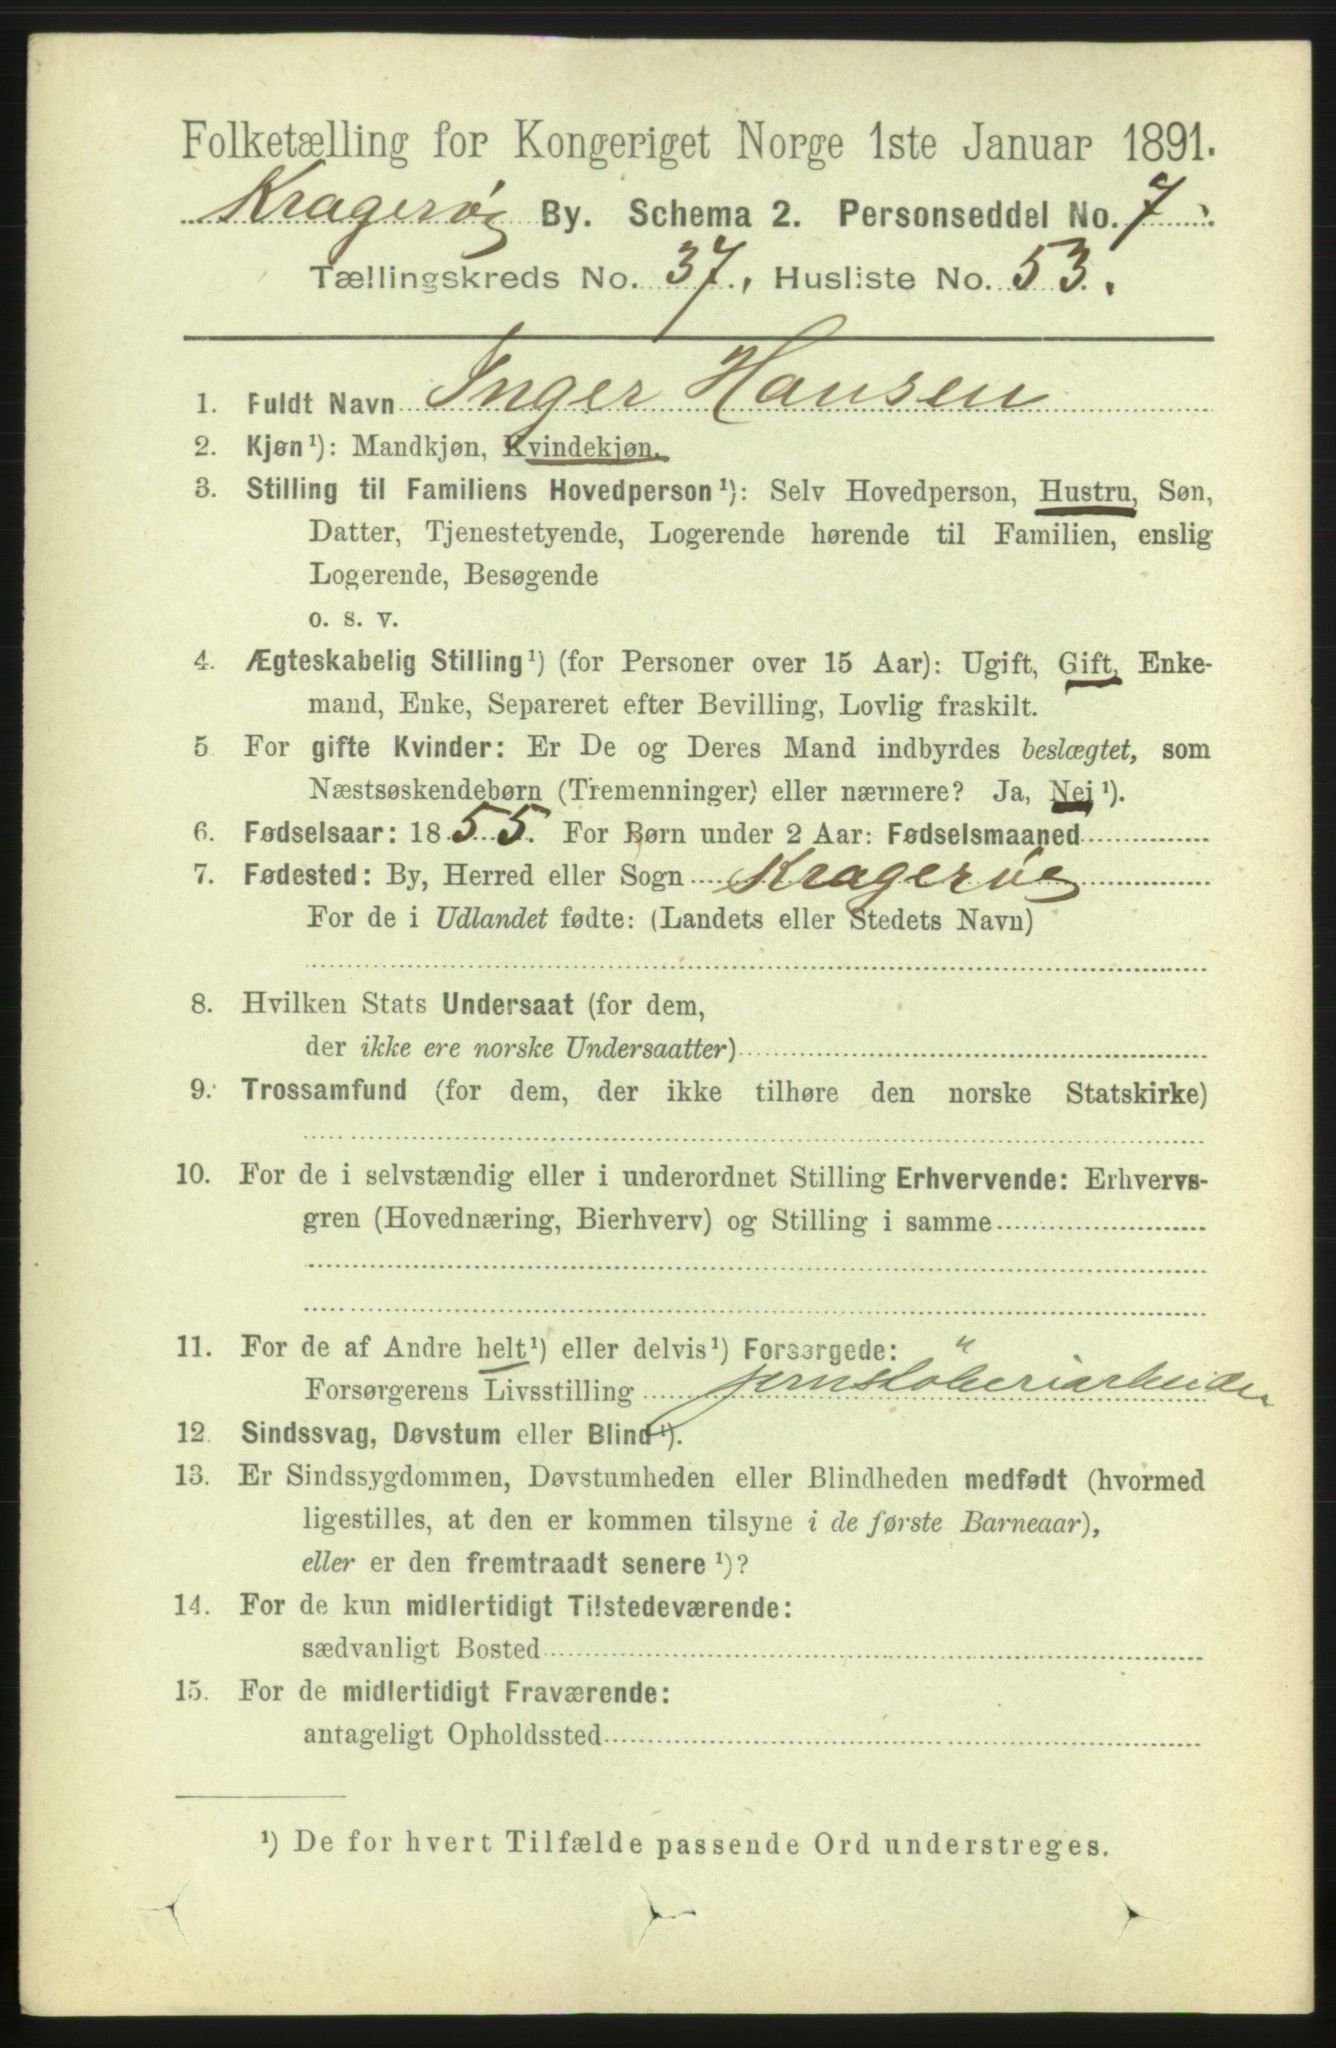 Folketælling for Kongeriget Norge 1ste Januar 1891.
Kragerø By. Schema 2. Personseddel No. 7.
Tællingskreds No. 37., Husliste No. 53.
1. Fuldt Navn Inger Hansen
2. Kjøn¹): Mandkjøn, Kvindekjøn.
3. Stilling til Familiens Hovedperson¹): Selv Hovedperson, Hustru, Søn,
Datter, Tjenestetyende, Logerende hørende til Familien, enslig
Logerende, Besøgende
o. s. v.
4. Ægteskabelig Stilling¹) (for Personer over 15 Aar): Ugift, Gift, Enke-
mand, Enke, Separeret efter Bevilling, Lovlig fraskilt.
5 For gifte Kvinder: Er De og Deres Mand indbyrdes beslægtet, som
Næstsøskendebørn (Tremenninger) eller nærmere? Ja, Nej¹).
6. Fødselsaar: 1855. For Børn under 2 Aar: Fødselsmaaned
7. Fødested: By, Herred eller Sogn Kragerø
For de i Udlandet fødte: (Landets eller Stedets Navn)
8. Hvilken Stats Undersaat (for dem,
der ikke ere norske Undersaatter)
9. Trossamfund (for dem, der ikke tilhøre den norske Statskirke)
10. For de i selvstændig eller i underordnet Stilling Erhvervende: Erhvervs-
gren (Hovednæring, Bierhverv) og Stilling i samme
11. For de af Andre helt¹) eller delvis¹) Forsørgede:
Forsørgerens Livsstilling jernstöberiarbeider
12. Sindssvag, Døvstum eller Blind¹).
13. Er Sindssygdommen, Døvstumheden eller Blindheden medfødt (hvormed
ligestilles, at den er kommen tilsyne i de første Barneaar),
eller er den fremtraadt senere¹)?
14. For de kun midlertidigt Tilstedeværende:
sædvanligt Bosted
15. For de midlertidigt Fraværende:
antageligt Opholdssted
¹) De for hvert Tilfælde passende Ord understreges.